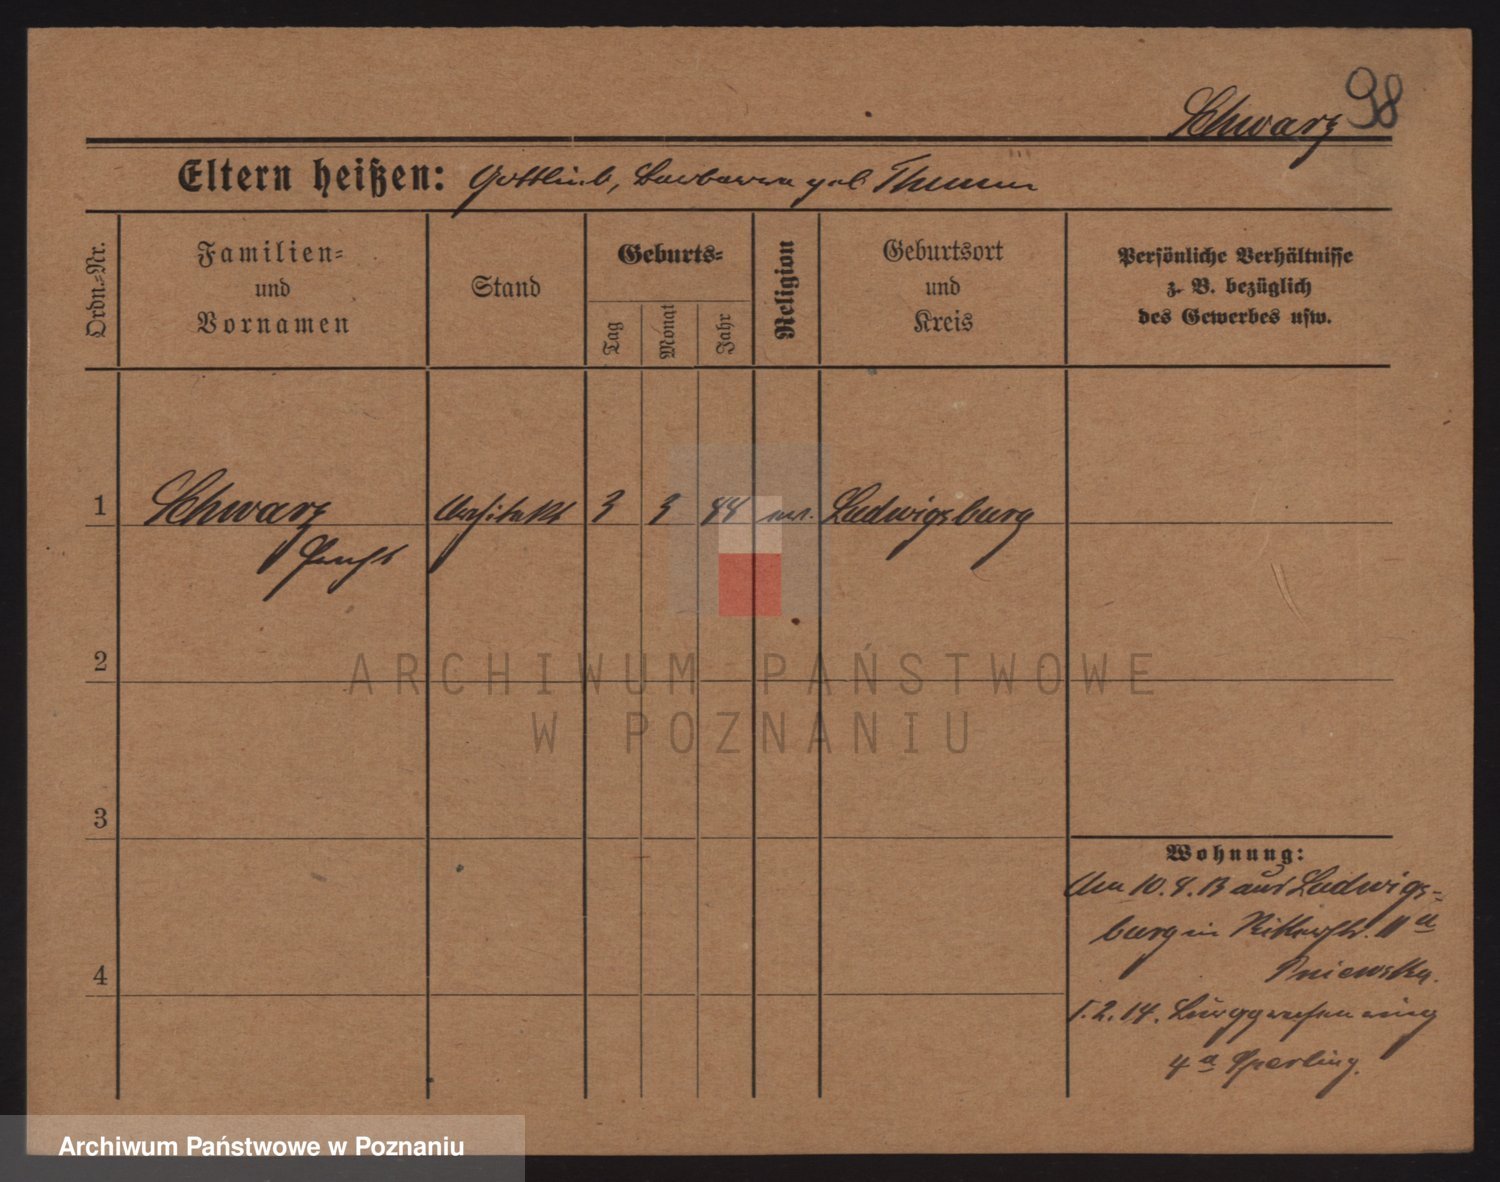 Schwarz 98
Eltern heißen: Gottlieb, Barbara geb
Ordn.=Nr.
Familien=
und
Vornamen
Stand
Geburts=
Tag
Monat
Jahr
Religion
Geburtsort
und
Kreis
Persönliche Verhältnisse
z. B. bezüglich
des Gewerbes usw.
1 Schwarz Architekt 3 3 ev. Ludwigsburg
2
ARCHIWUM PAŃSTWOWE
W POZNANIU
3
Wohnung:
10. aus Ludwigs-
burg in Ritterstr. 11a
Pniewska.
1.2.14.
4a Sperling.
4
Archiwum Państwowe w Poznaniu